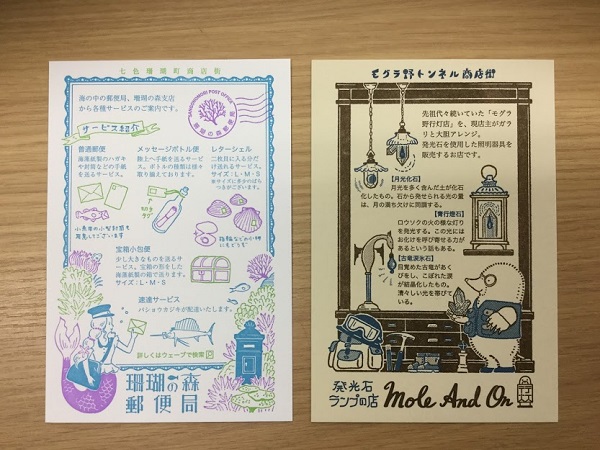 七色珊瑚町商店街
海の中の郵便局、珊瑚の森支店
から各種サービスのご案内です。
SANGONOMORI POST OFFICE
珊瑚の森郵便局
サービス紹介
普通郵便
海藻紙製のハガキ
や封筒などの手紙
を送るサービス。
小魚用の小型封筒も
用意してございます
メッセージボトル便
陸上へ手紙を送るサービ
ス。ボトルの種類は様々
取り揃えております。
レターシェル
二枚貝に入る分だ
け送れるサービス。
サイズ:L・M・S
宝箱小包便
少し大きなものを送るサー
ビス。宝箱の形をした
海藻紙製の箱で送ります。
サイズ:L・M・S
速達サービス
バショウカジキが配達いたします。
詳しくはウェーブで検索
珊瑚の森
郵便局
モグラ野トンネル商店街
先祖代々続いていた「モグラ
野行灯店」を、現店主がガラ
リと大胆アレンジ。
発光石を使用した照明器具を
販売するお店です。
【月光化石】
月光を多く含んだ土が化石
化したもの。石から発せられる光の量
は、月の満ち欠けに同調する。
【青行燈石】
ロウソクの火の様な灯り
を発光する。この光には
お化けを呼び寄せる力が
あるという話もある。
【古竜涙水石】
目覚めた古竜があく
びをし、こぼれた涙
が結晶化したもの。
清々しい光を帯びて
いる。
発光石
ランプの店
Mole And On